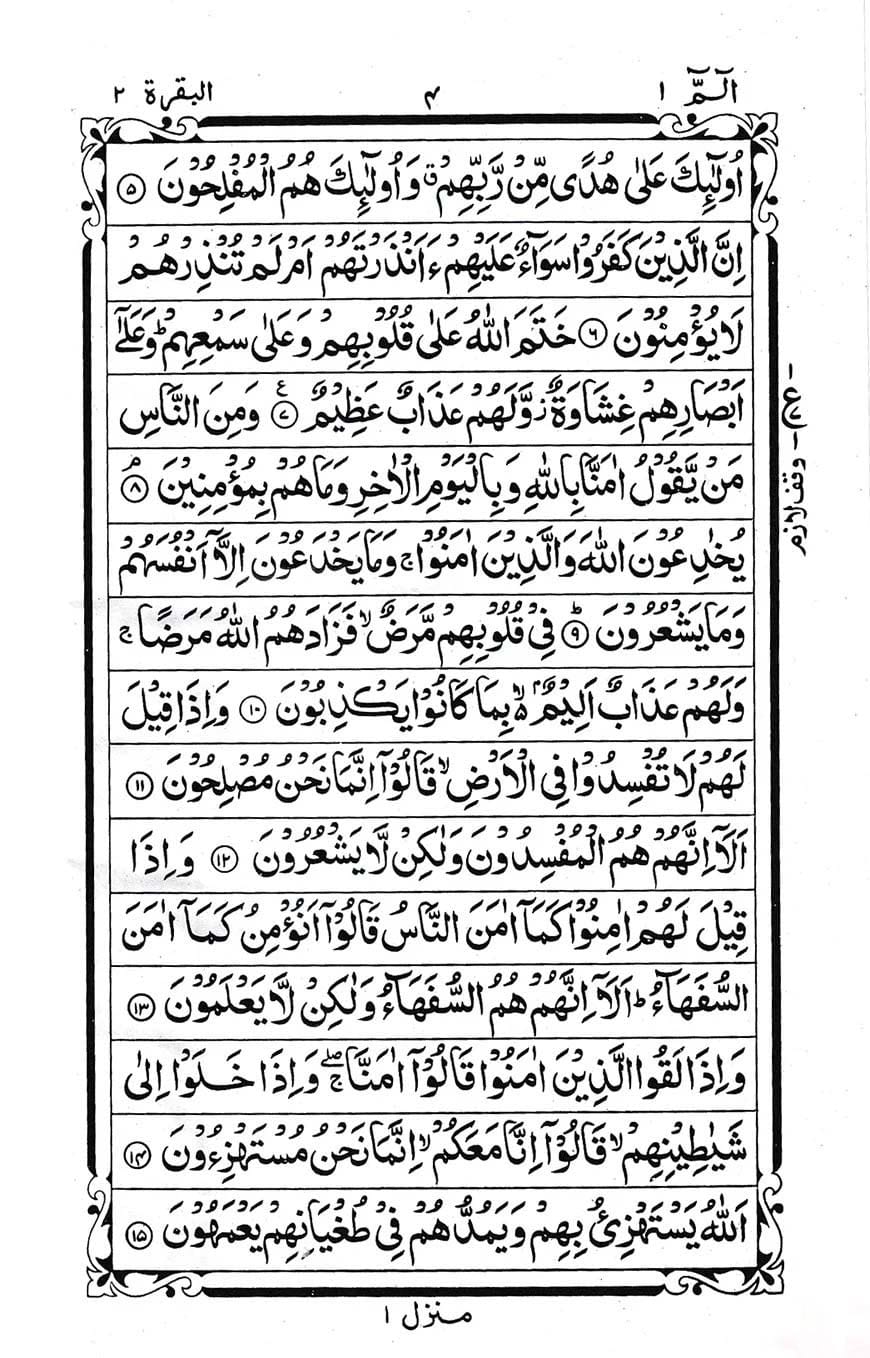 الٓمّٓ ١
٤
البقرة ٢
اُولٰٓئِكَ عَلٰى هُدًى مِّنْ رَّبِّهِمْ ۙ وَاُولٰٓئِكَ هُمُ الْمُفْلِحُوْنَ ٥
اِنَّ الَّذِيْنَ كَفَرُوْا سَوَآءٌ عَلَيْهِمْ ءَاَنْذَرْتَهُمْ اَمْ لَمْ تُنْذِرْهُمْ
لَا يُؤْمِنُوْنَ ٦ خَتَمَ اللّٰهُ عَلٰى قُلُوْبِهِمْ وَعَلٰى سَمْعِهِمْ ؕ وَعَلٰٓى
اَبْصَارِهِمْ غِشَاوَةٌ ز وَّلَهُمْ عَذَابٌ عَظِيْمٌ ٧ ع وَمِنَ النَّاسِ
مَنْ يَّقُوْلُ اٰمَنَّا بِاللّٰهِ وَبِالْيَوْمِ الْاٰخِرِ وَمَا هُمْ بِمُؤْمِنِيْنَ ٨ ۘ
يُخٰدِعُوْنَ اللّٰهَ وَالَّذِيْنَ اٰمَنُوْا ۚ وَمَا يَخْدَعُوْنَ اِلَّآ اَنْفُسَهُمْ
وَمَا يَشْعُرُوْنَ ٩ ؕ فِيْ قُلُوْبِهِمْ مَّرَضٌ ۙ فَزَادَهُمُ اللّٰهُ مَرَضًا ۚ
وَلَهُمْ عَذَابٌ اَلِيْمٌۢ ۙ بِمَا كَانُوْا يَكْذِبُوْنَ ١٠ وَاِذَا قِيْلَ
لَهُمْ لَا تُفْسِدُوْا فِى الْاَرْضِ ۙ قَالُوْٓا اِنَّمَا نَحْنُ مُصْلِحُوْنَ ١١
اَلَآ اِنَّهُمْ هُمُ الْمُفْسِدُوْنَ وَلٰكِنْ لَّا يَشْعُرُوْنَ ١٢ وَاِذَا
قِيْلَ لَهُمْ اٰمِنُوْا كَمَآ اٰمَنَ النَّاسُ قَالُوْٓا اَنُؤْمِنُ كَمَآ اٰمَنَ
السُّفَهَآءُ ؕ اَلَآ اِنَّهُمْ هُمُ السُّفَهَآءُ وَلٰكِنْ لَّا يَعْلَمُوْنَ ١٣
وَاِذَا لَقُوا الَّذِيْنَ اٰمَنُوْا قَالُوْٓا اٰمَنَّا ۚ ۖ وَاِذَا خَلَوْا اِلٰى
شَيٰطِيْنِهِمْ ۙ قَالُوْٓا اِنَّا مَعَكُمْ ۙ اِنَّمَا نَحْنُ مُسْتَهْزِءُوْنَ ١٤
اَللّٰهُ يَسْتَهْزِئُ بِهِمْ وَيَمُدُّهُمْ فِيْ طُغْيَانِهِمْ يَعْمَهُوْنَ ١٥
ع
وقف لازم
منزل ١